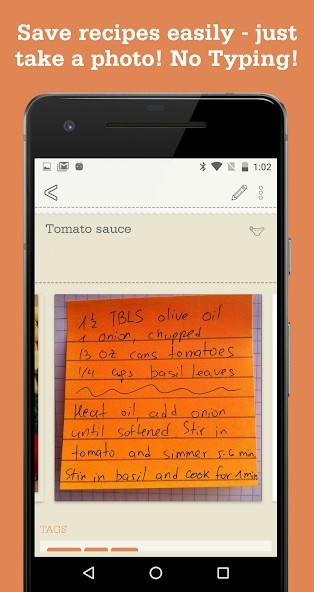 Save recipes easily - just
take a photo! No Typing!
1:02
Tomato sauce
1½ TBLS olive oil
1 onion, chupped
13 OZ cans tomatoes
1/4 cups basil leaves
Heat oil, add onion
until softened. Stir in
tomato and simmer 5-6 min.
Stir in basil and cook for 1 min
TAGS